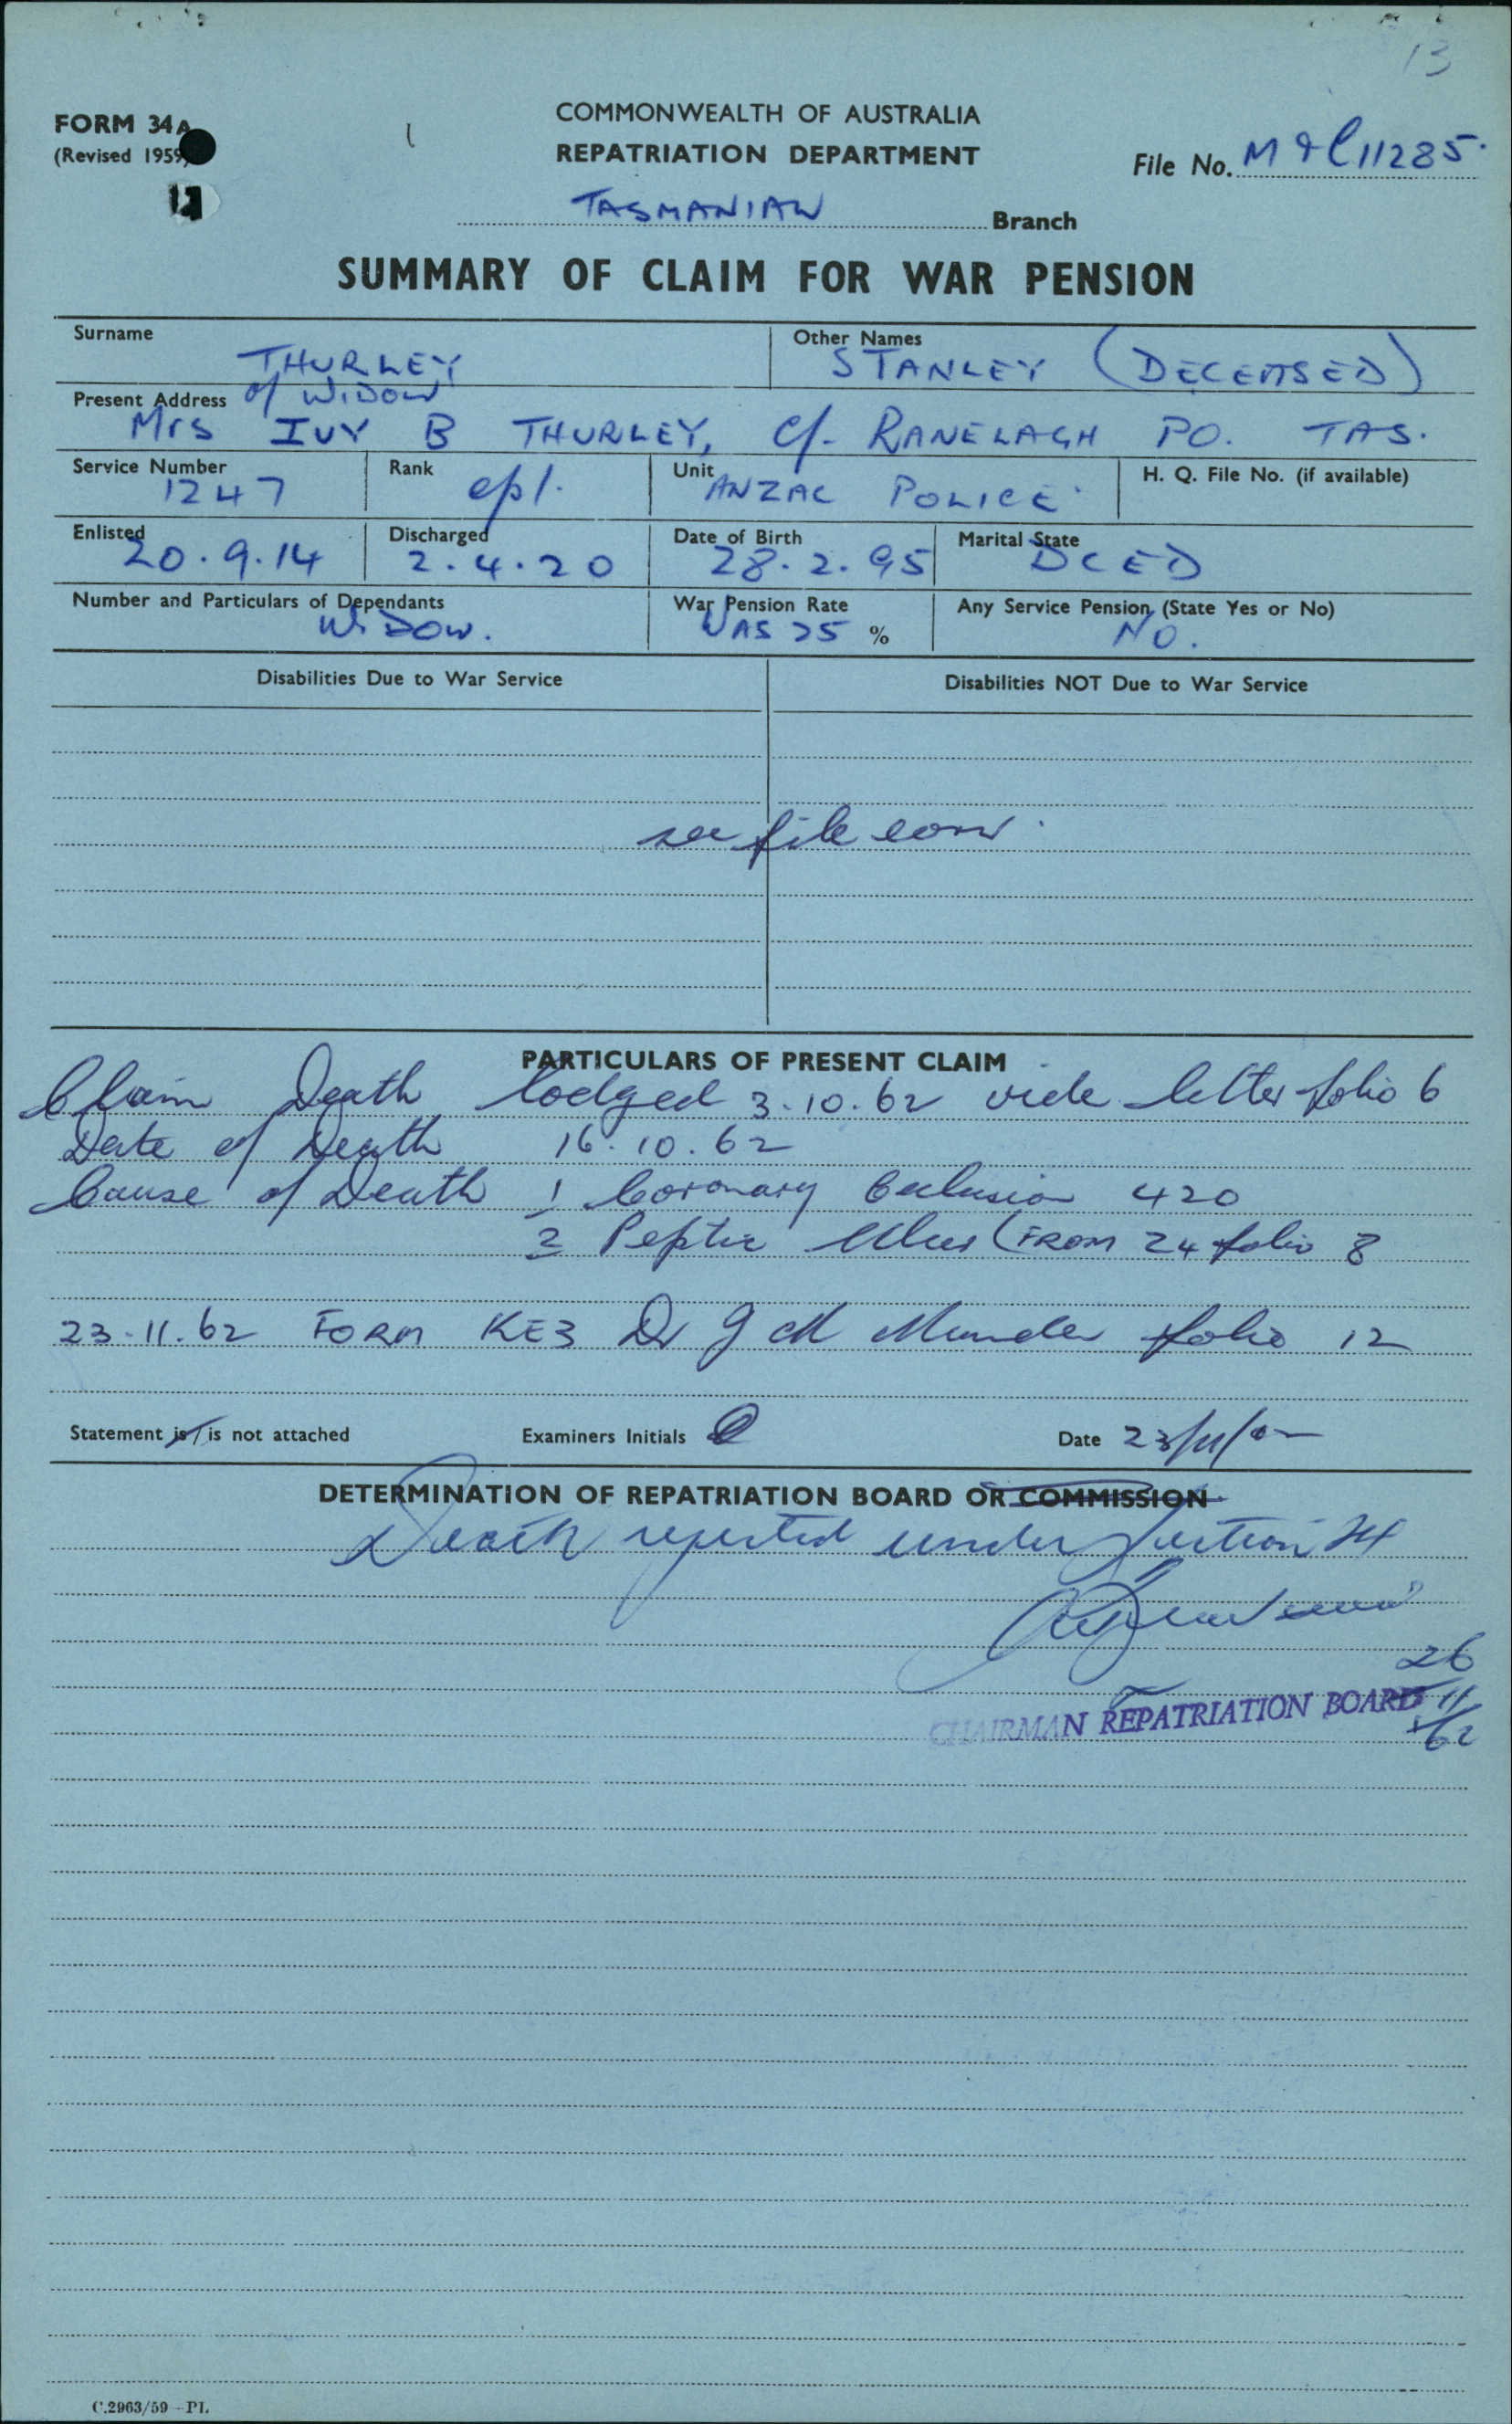 13
FORM 34A
(Revised 1959)
COMMONWEALTH OF AUSTRALIA
REPATRIATION DEPARTMENT
File No. M & C 11285.
TASMANIAN Branch
SUMMARY OF CLAIM FOR WAR PENSION
Surname THURLEY
Other Names STANLEY (DECEASED)
Present Address of WIDOW
Mrs IVY B THURLEY, C/- RANELAGH PO. TAS.
Service Number 1247
Rank cpl.
Unit ANZAC POLICE
H. Q. File No. (if available)
Enlisted 20.9.14
Discharged 2.4.20
Date of Birth 28.2.95
Marital State DCED
Number and Particulars of Dependants WIDOW.
War Pension Rate WAS 25 %
Any Service Pension (State Yes or No) NO.
Disabilities Due to War Service
Disabilities NOT Due to War Service
see file cover.
PARTICULARS OF PRESENT CLAIM
Claim Death lodged 3.10.62 vide letter folio 6
Date of Death 16.10.62
Cause of Death 1 Coronary Occlusion 420
2 Peptic Ulcer (FROM 24 folio 8
23.11.62 FORM KE3 Dr J M folio 12
Statement is/is not attached
Examiners Initials
Date 23/11/62
DETERMINATION OF REPATRIATION BOARD OR COMMISSION
Death rejected under Section 24
CHAIRMAN REPATRIATION BOARD
26/11/62
C.2963/59 —PL